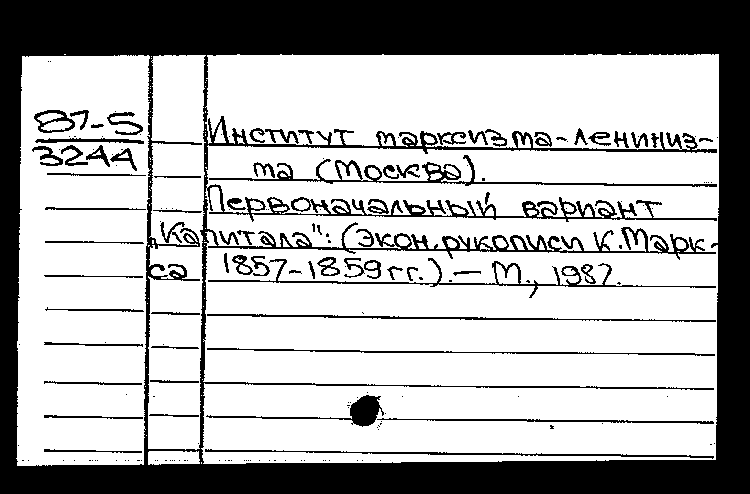 87-5
3244
Институт марксизма-лениниз-
ма (Москва).
Первоначальный вариант
„Капитала": (Экон. рукописи К. Марк-
са 1857-1859 гг.). — М., 1987.